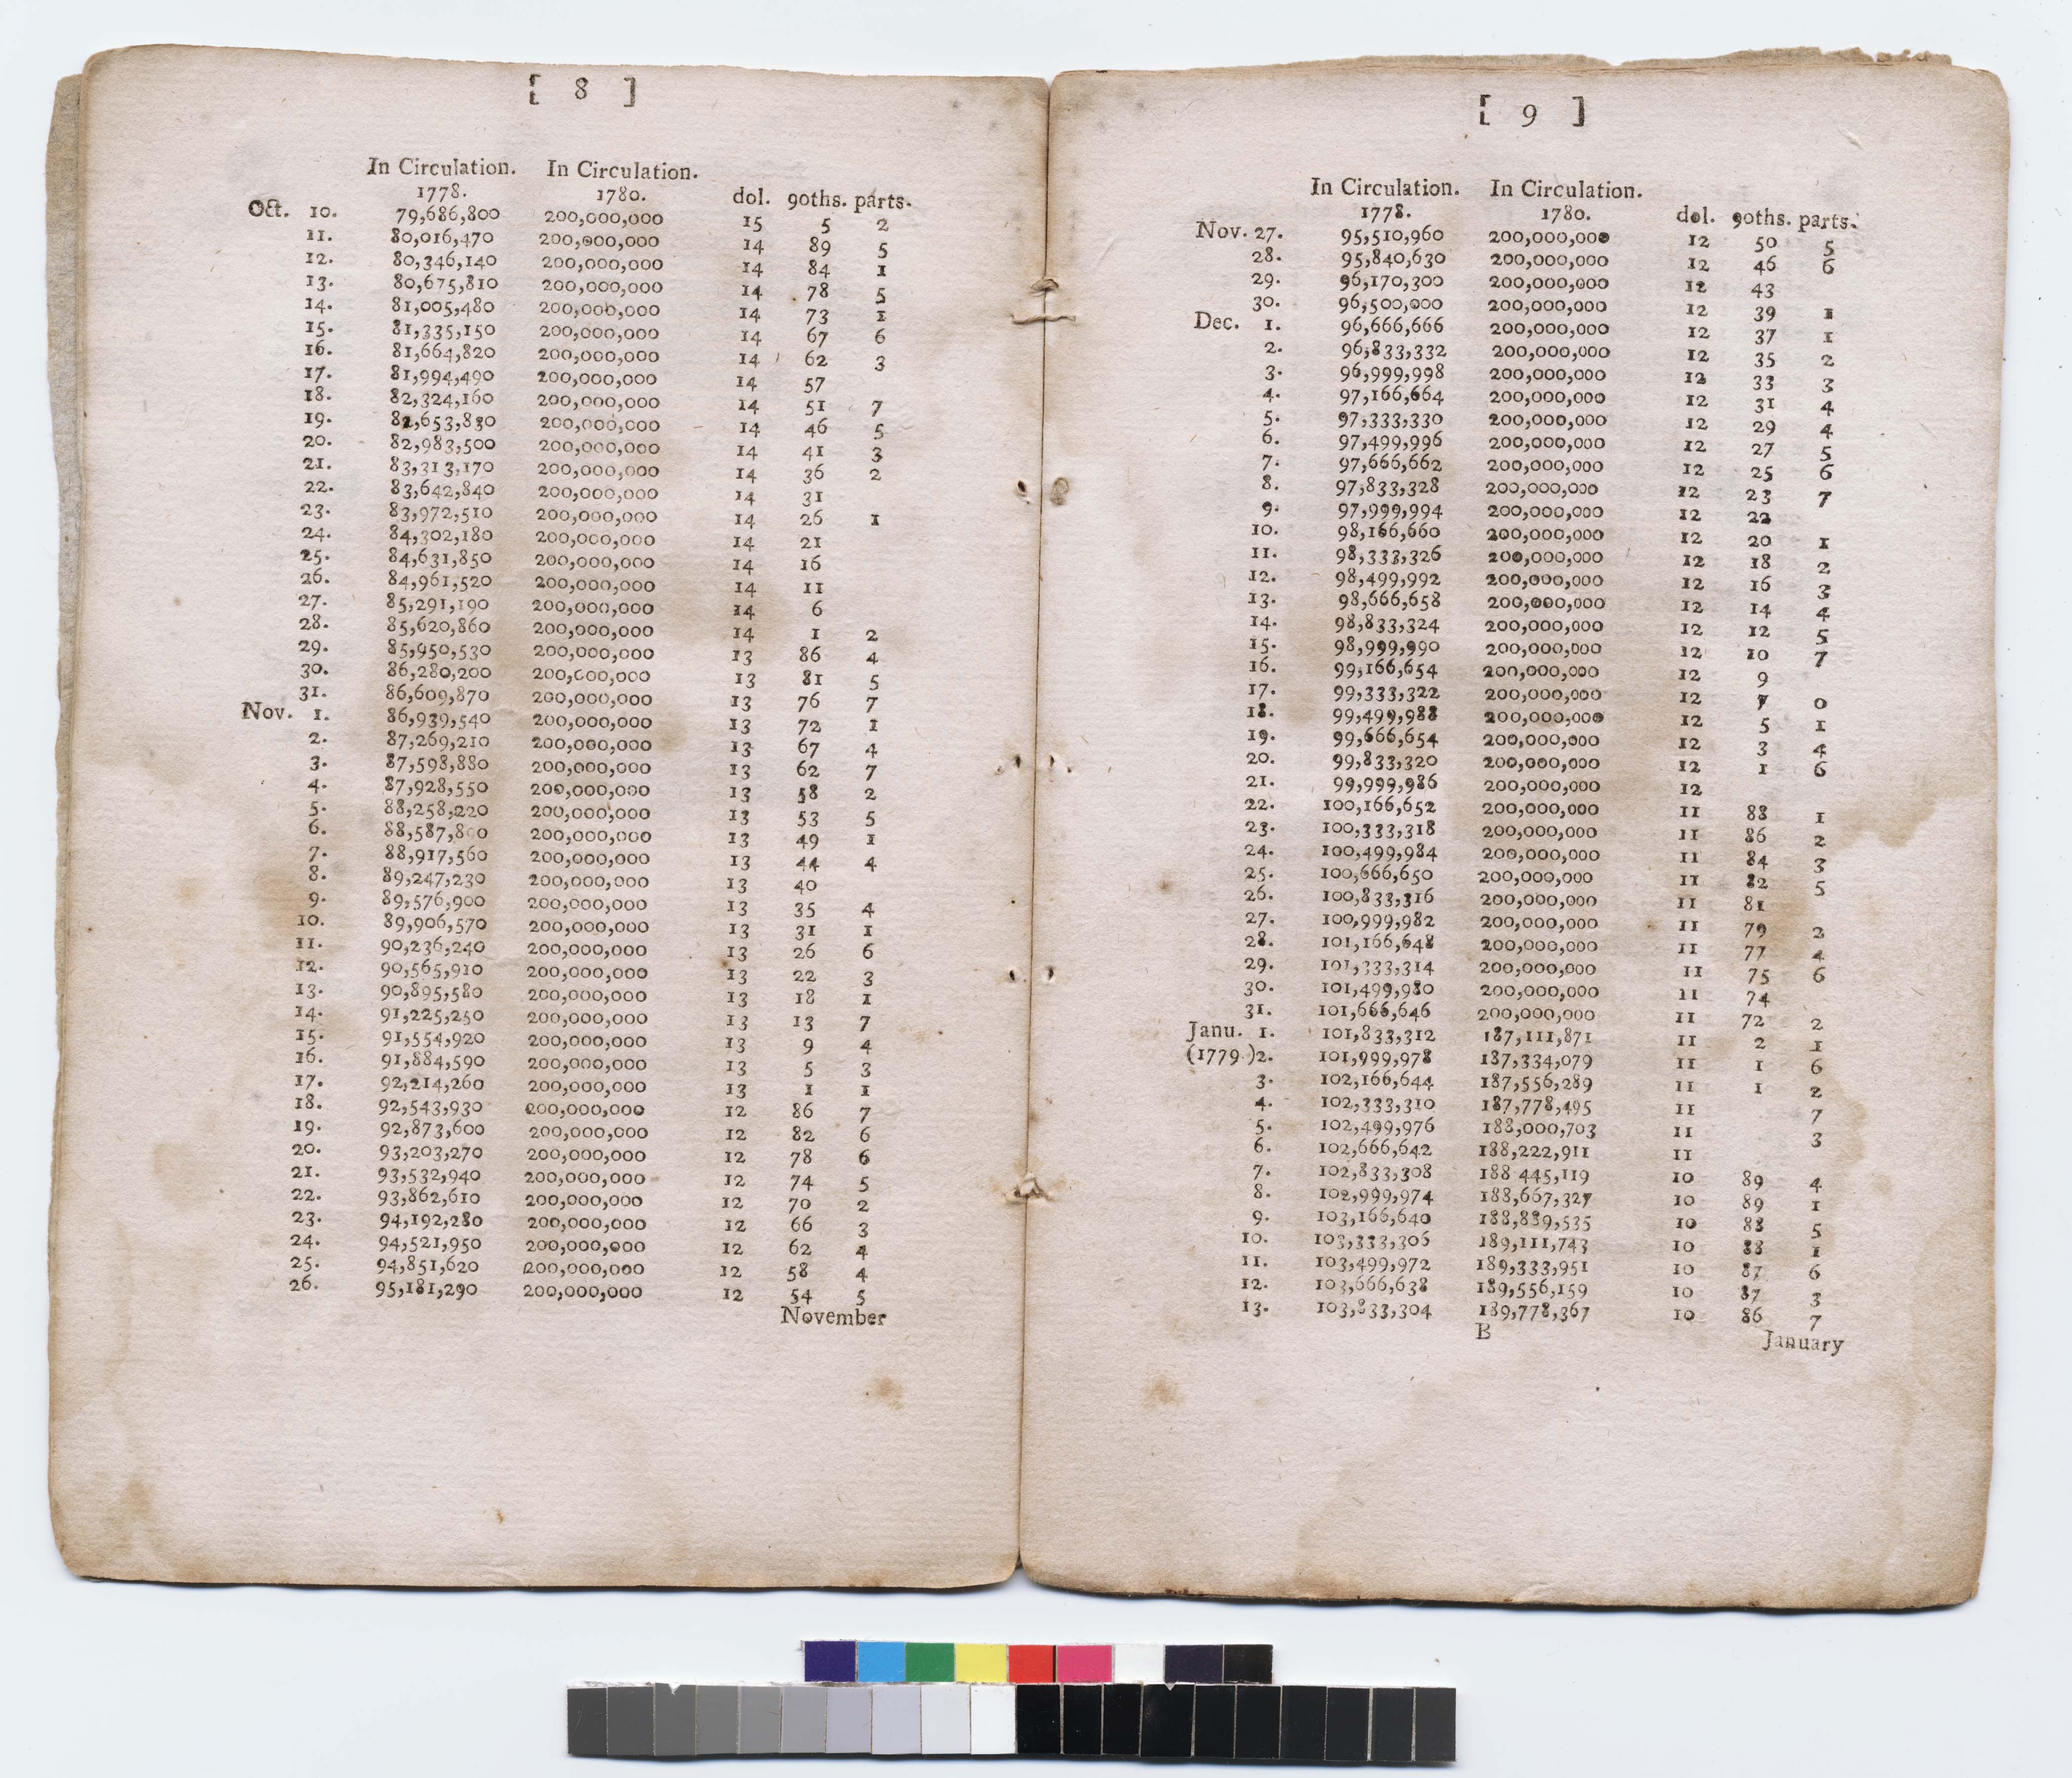 [ 8 ]
In Circulation. In Circulation.
1778. 1780. dol. 90ths. parts.
Oct. 10. 79,686,800 200,000,000 15 5 2
11. 80,016,470 200,000,000 14 89 5
12. 80,346,140 200,000,000 14 84 1
13. 80,675,810 200,000,000 14 78 5
14. 81,005,480 200,000,000 14 73 1
15. 81,335,150 200,000,000 14 67 6
16. 81,664,820 200,000,000 14 62 3
17. 81,994,490 200,000,000 14 57
18. 82,324,160 200,000,000 14 51 7
19. 82,653,830 200,000,000 14 46 5
20. 82,983,500 200,000,000 14 41 3
21. 83,313,170 200,000,000 14 36 2
22. 83,642,840 200,000,000 14 31
23. 83,972,510 200,000,000 14 26 1
24. 84,302,180 200,000,000 14 21
25. 84,631,850 200,000,000 14 16
26. 84,961,520 200,000,000 14 11
27. 85,291,190 200,000,000 14 6
28. 85,620,860 200,000,000 14 1 2
29. 85,950,530 200,000,000 13 86 4
30. 86,280,200 200,000,000 13 81 5
31. 86,609,870 200,000,000 13 76 7
Nov. 1. 86,939,540 200,000,000 13 72 1
2. 87,269,210 200,000,000 13 67 4
3. 87,598,880 200,000,000 13 62 7
4. 87,928,550 200,000,000 13 58 2
5. 88,258,220 200,000,000 13 53 5
6. 88,587,890 200,000,000 13 49 1
7. 88,917,560 200,000,000 13 44 4
8. 89,247,230 200,000,000 13 40
9. 89,576,900 200,000,000 13 35 4
10. 89,906,570 200,000,000 13 31 1
11. 90,236,240 200,000,000 13 26 6
12. 90,565,910 200,000,000 13 22 3
13. 90,895,580 200,000,000 13 18 1
14. 91,225,250 200,000,000 13 13 7
15. 91,554,920 200,000,000 13 9 4
16. 91,884,590 200,000,000 13 5 3
17. 92,214,260 200,000,000 13 1 1
18. 92,543,930 200,000,000 12 86 7
19. 92,873,600 200,000,000 12 82 6
20. 93,203,270 200,000,000 12 78 6
21. 93,532,940 200,000,000 12 74 5
22. 93,862,610 200,000,000 12 70 2
23. 94,192,280 200,000,000 12 66 3
24. 94,521,950 200,000,000 12 62 4
25. 94,851,620 200,000,000 12 58 4
26. 95,181,290 200,000,000 12 54 5
November
[ 9 ]
In Circulation. In Circulation.
1778. 1780. dol. 90ths. parts.
Nov. 27. 95,510,960 200,000,000 12 50 5
28. 95,840,630 200,000,000 12 46 6
29. 96,170,300 200,000,000 12 43
30. 96,500,000 200,000,000 12 39 1
Dec. 1. 96,666,666 200,000,000 12 37 1
2. 96,833,332 200,000,000 12 35 2
3. 96,999,998 200,000,000 12 33 3
4. 97,166,664 200,000,000 12 31 4
5. 97,333,330 200,000,000 12 29 4
6. 97,499,996 200,000,000 12 27 5
7. 97,666,662 200,000,000 12 25 6
8. 97,833,328 200,000,000 12 23 7
9. 97,999,994 200,000,000 12 22
10. 98,166,660 200,000,000 12 20 1
11. 98,333,326 200,000,000 12 18 2
12. 98,499,992 200,000,000 12 16 3
13. 98,666,658 200,000,000 12 14 4
14. 98,833,324 200,000,000 12 12 5
15. 98,999,990 200,000,000 12 10 7
16. 99,166,654 200,000,000 12 9
17. 99,333,322 200,000,000 12 7 0
18. 99,499,988 200,000,000 12 5 1
19. 99,666,654 200,000,000 12 3 4
20. 99,833,320 200,000,000 12 1 6
21. 99,999,986 200,000,000 12
22. 100,166,652 200,000,000 11 88 1
23. 100,333,318 200,000,000 11 86 2
24. 100,499,984 200,000,000 11 84 3
25. 100,666,650 200,000,000 11 82 5
26. 100,833,316 200,000,000 11 81
27. 100,999,982 200,000,000 11 79 2
28. 101,166,648 200,000,000 11 77 4
29. 101,333,314 200,000,000 11 75 6
30. 101,499,980 200,000,000 11 74
31. 101,666,646 200,000,000 11 72 2
Janu. 1. 101,833,312 187,111,871 11 2 1
(1779.)2. 101,999,978 187,334,079 11 1 6
3. 102,166,644 187,556,289 11 1 2
4. 102,333,310 187,778,495 11 7
5. 102,499,976 188,000,703 11 3
6. 102,666,642 188,222,911 11
7. 102,833,308 188 445,119 10 89 4
8. 102,999,974 188,667,327 10 89 1
9. 103,166,640 188,889,535 10 88 5
10. 103,333,306 189,111,743 10 88 1
11. 103,499,972 189,333,951 10 87 6
12. 103,666,638 189,556,159 10 87 3
13. 103,833,304 189,778,367 10 86 7
B January